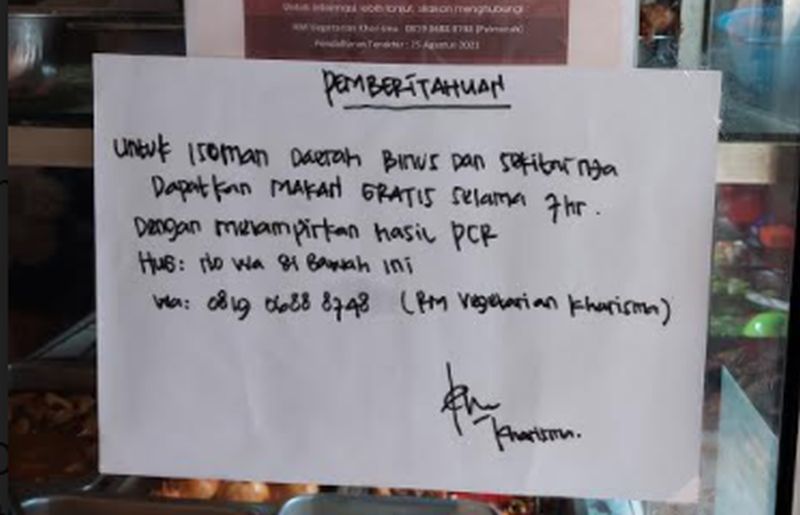 Untuk informasi lebih lanjut, silakan menghubungi
RM Vegetarian Kharisma
Pendaftaran Terakhir : 25 Agustus 2021
PEMBERITAHUAN
Untuk Isoman Daerah Binus Dan Sekitarnya
Dapatkan MAKAN GRATIS Selama 7hr.
Dengan melampirkan hasil PCR
Hub: No Wa di Bawah ini
Wa: 0819 0688 8748 (RM Vegetarian Kharisma)
Kharisma.